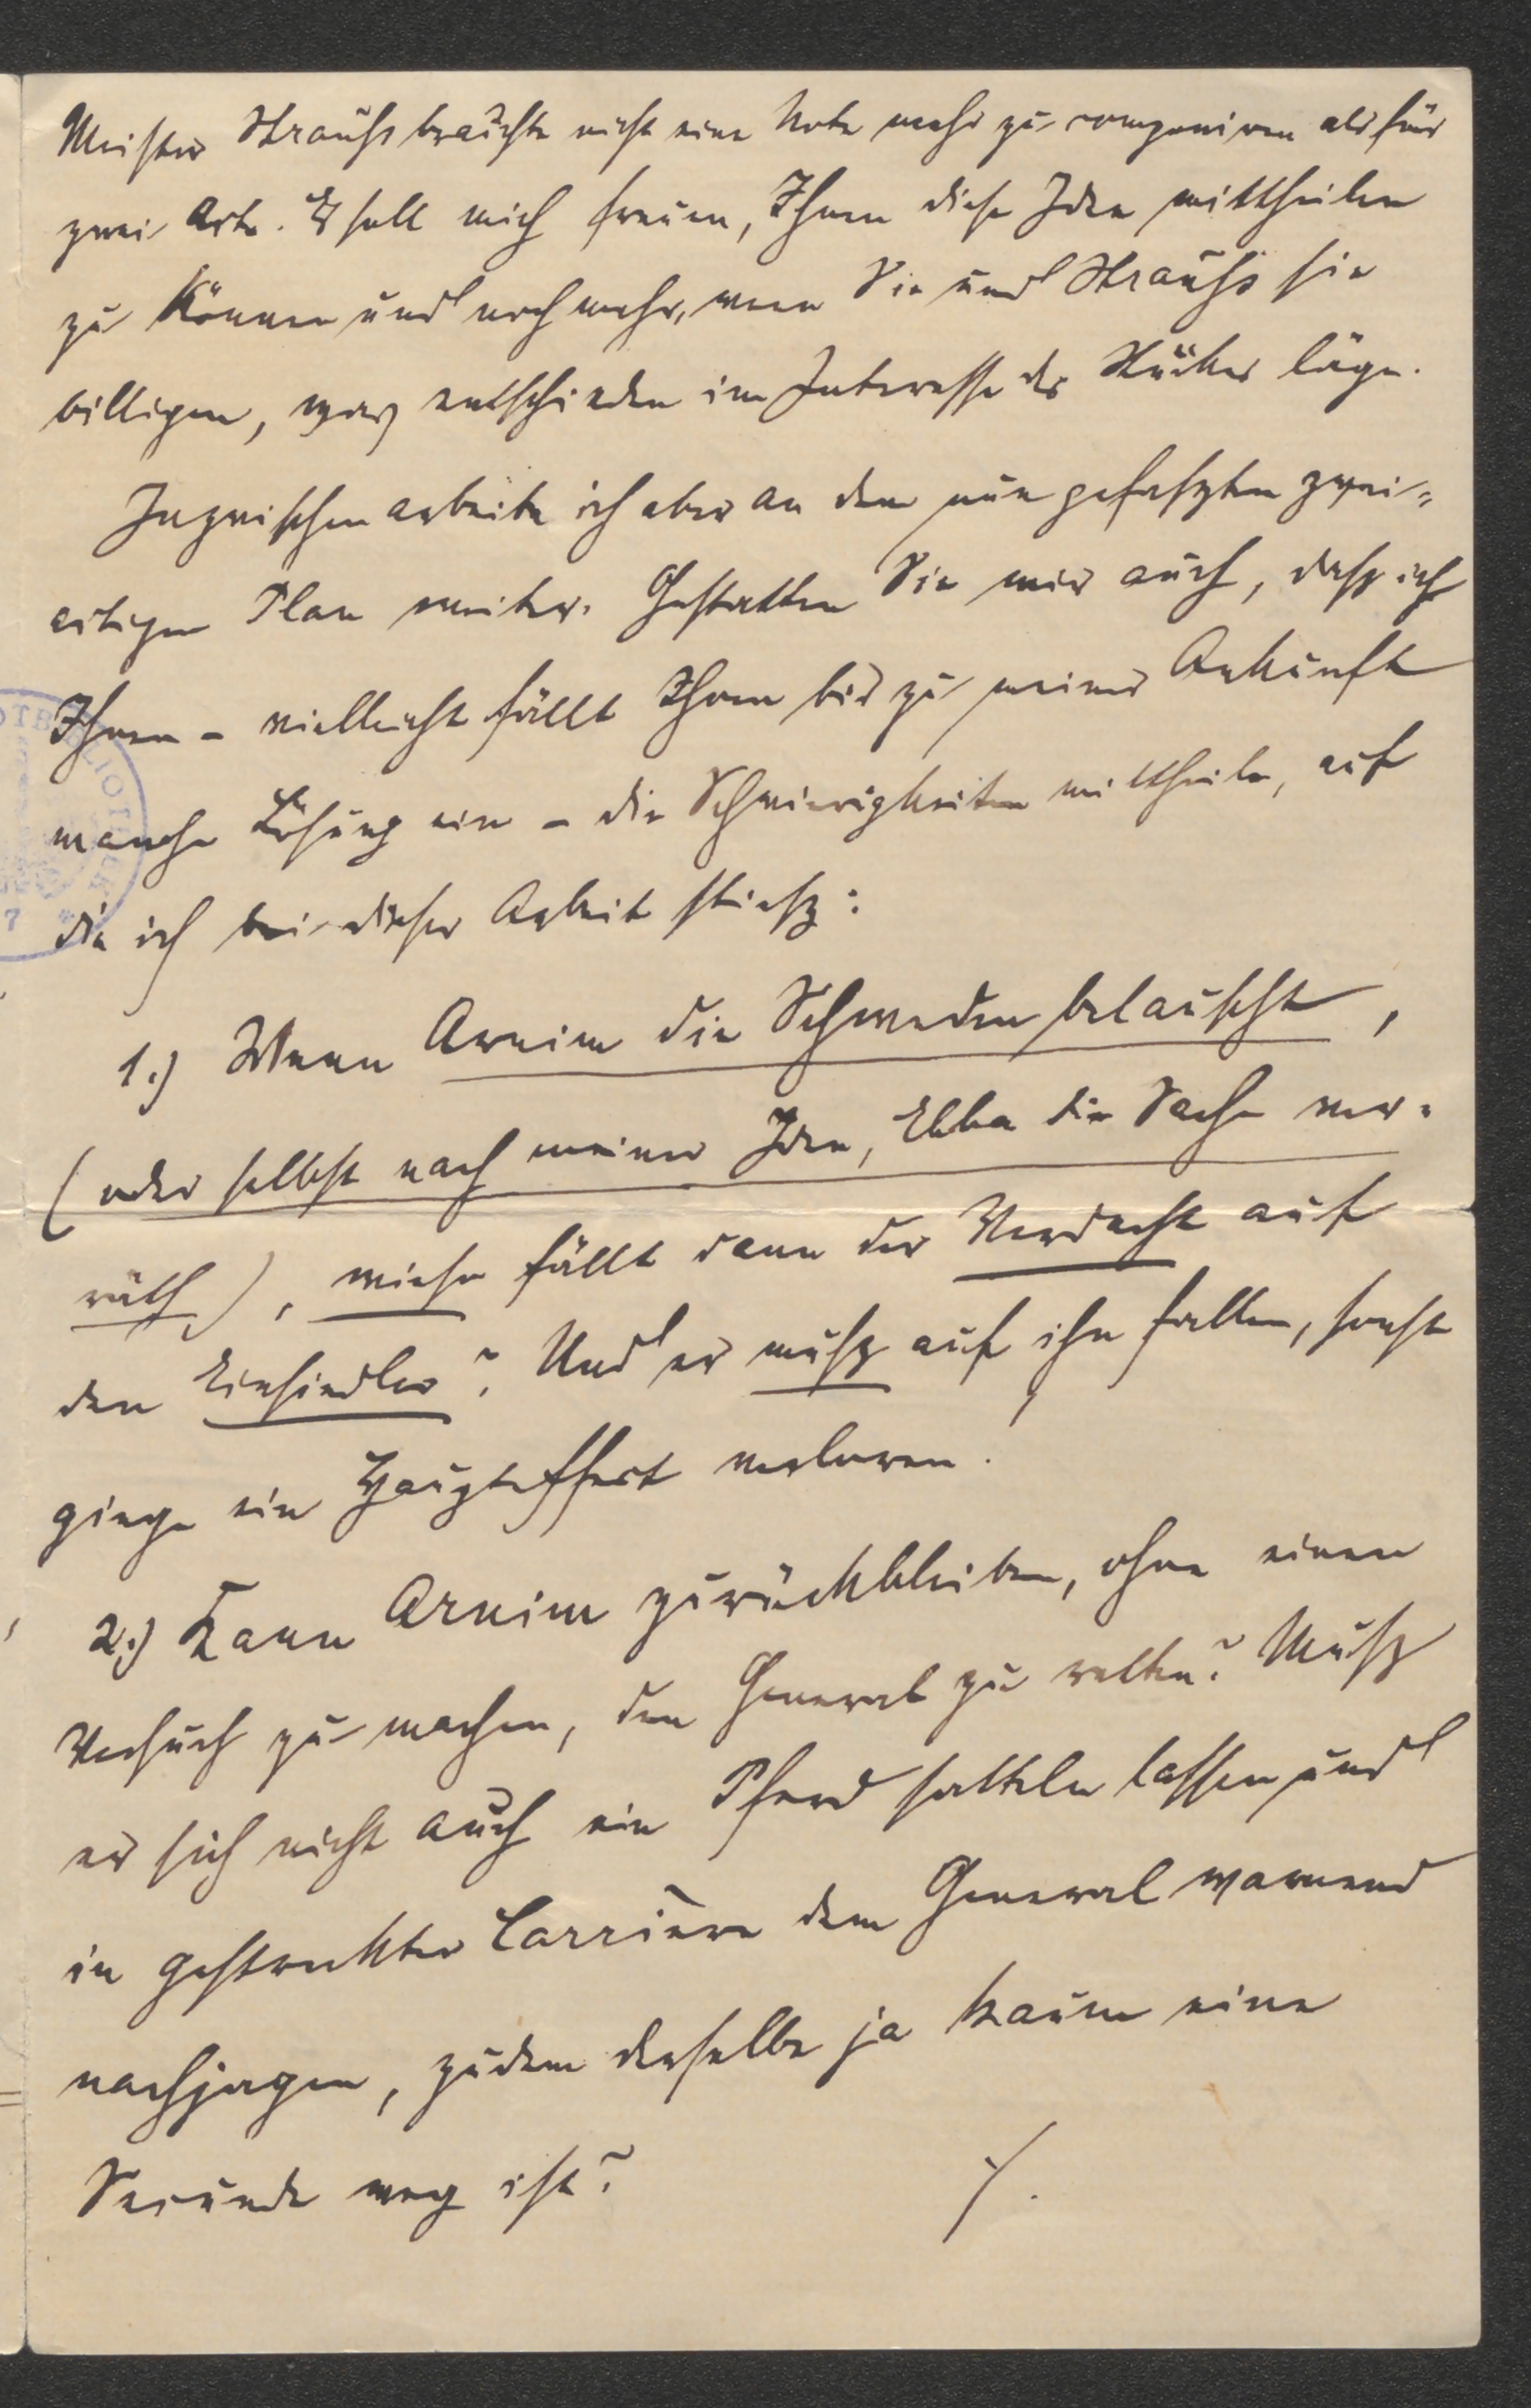 Meister Strauß brauchte nicht eine Note mehr zu componiren als für
zwei Acte. Es soll mich freuen, Ihnen diese Idee mittheilen
zu können und noch mehr, wenn Sie und Strauß sie
billigen, was entschieden im Interesse des Stückes läge.
Inzwischen arbeite ich aber an dem nun gefaszten zwei-
actigen Plan weiter. Gestatten Sie mir auch, dasz ich
Ihnen - vielleicht fällt Ihnen bis zu meiner Ankunft
manche Lösung ein - die Schwierigkeiten mittheile, auf
die ich bei dieser Arbeit stiesz:
1.) Wenn Arnim die Schweden belauscht,
(oder selbst nach meiner Idee, Ebba die Sache ver-
räth), wieso fällt dann der Verdacht auf
den Einsiedler? Und er musz auf ihn fallen, sonst
ginge ein Haupteffect verloren!
2.) Kann Arnim zurückbleiben, ohne einen
Versuch zu machen, den General zu retten? Musz
er sich nicht auch ein Pferd satteln lassen und
in gestreckter Carrière dem General warnend
nachjagen, zudem derselbe ja kaum eine
Secunde weg ist?
./.